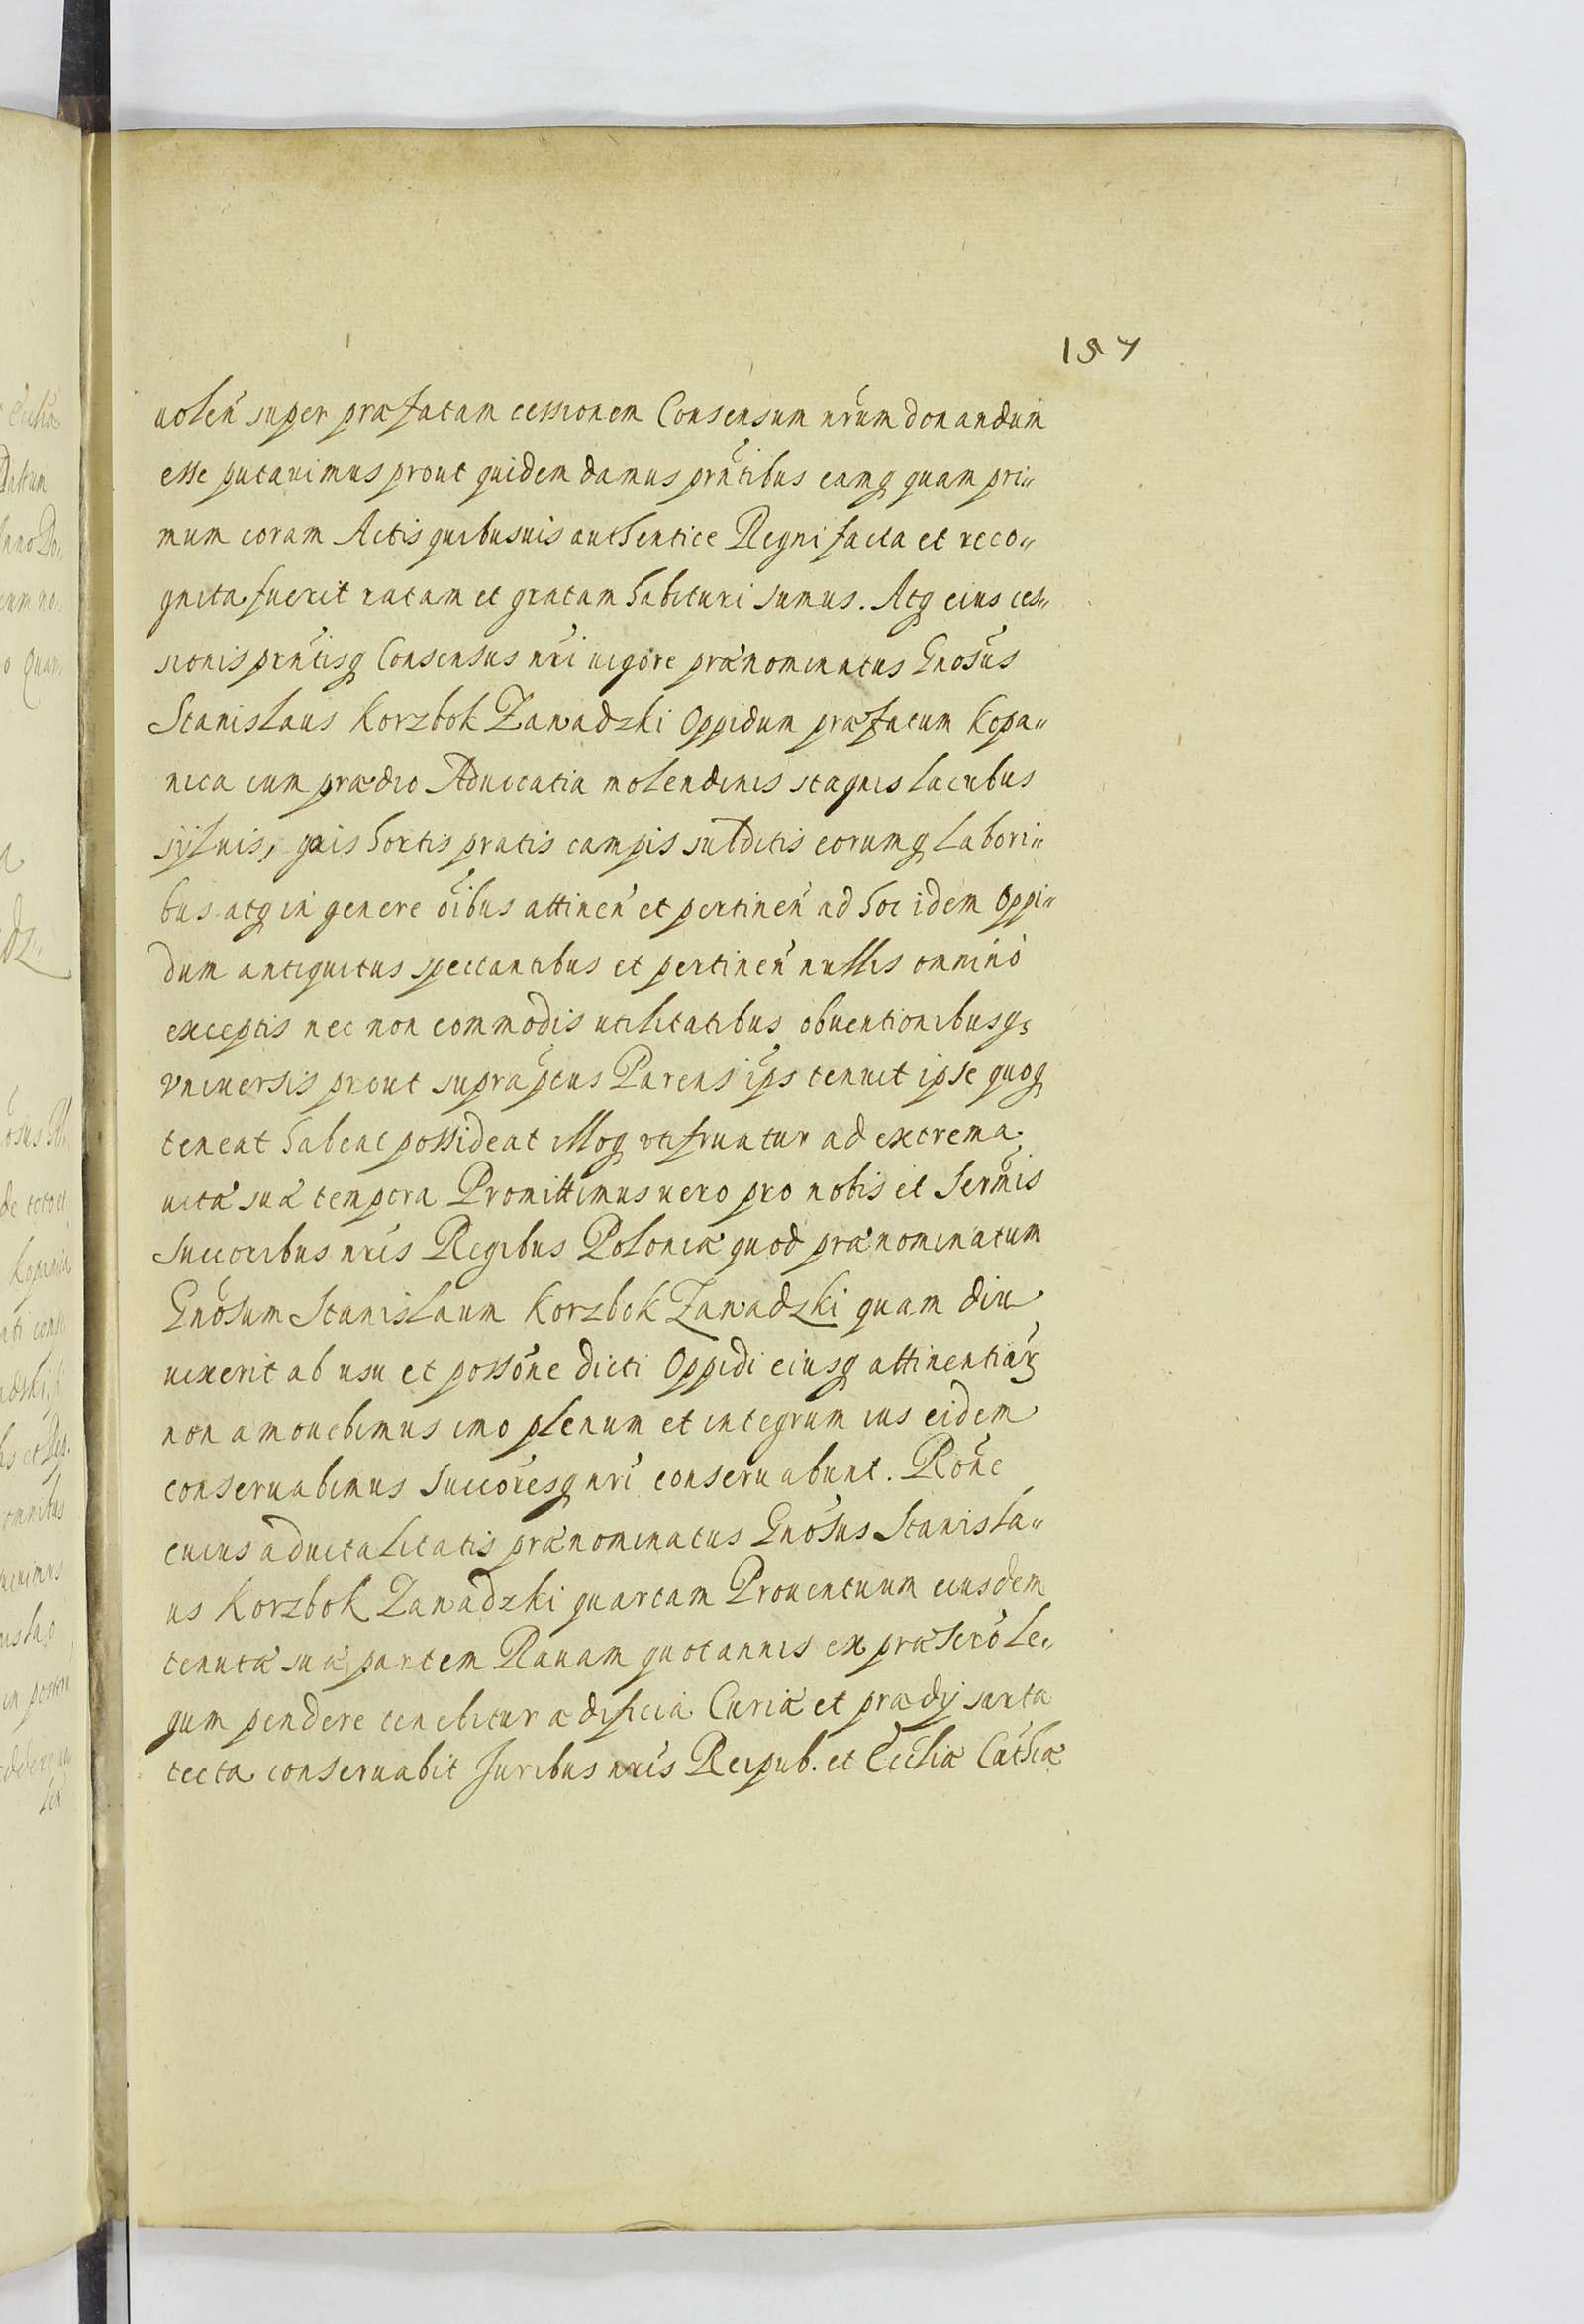 157
uoleñ super præfatam cessionem Consensum nr̃um donandum
esse putauimus prout quidem damus prñtibus eamq quam pri„
mum coram Actis quibusuis authentice Regni facta et reco„
gnita fuerit ratam et gratam habituri sumus. Atq eius ces„
sionis prñtisq Consensus nr̃i uigore prænominatus Gnõsus
Stanislaus Korzbok Zawadzki Oppidum præfatum Kopa„
nica cum prædio Aduocatia molendinis stagnis lacubus
syluis, gais hortis pratis campis subditis eorumq labori„
bus atq in genere õibus attineñ et pertineñ ad hoc idem Oppi„
dum antiquitus spectantibus et pertineñ nullis omninò
exceptis nec non commodis utilitatibus obuentionibusq
vniuersis prout suprãptus Parens ips̃ tenuit ipse quoq
teneat habeat possideat illoq utifruatur ad extrema
uitæ suæ tempora Promittimus uero pro nobis et Serm̃is
Succoribus nr̃is Regibus Poloniæ quod prænominatum
Gnõsum Stanislaum Korzbok Zawadzki quam diu
uixerit ab usu et possõne dicti Oppidi eiusq attinentiar̃
non amouebimus imo plenum et integrum ius eidem
conseruabimus Succõresq nr̃i conseruabunt. Rõne
cuius aduitalitatis prænominatus Gnõsus Stanisla„
us Korzbok Zawadzki quartam Prouentuum eiusdem
tenutæ suæ partem Rauam quotannis ex præscr̃o le„
gum pendere tenebitur ædificia Curiæ et prædij sarta
tecta conseruabit Juribus nr̃is Reipub. et Eccliæ Cathcæ